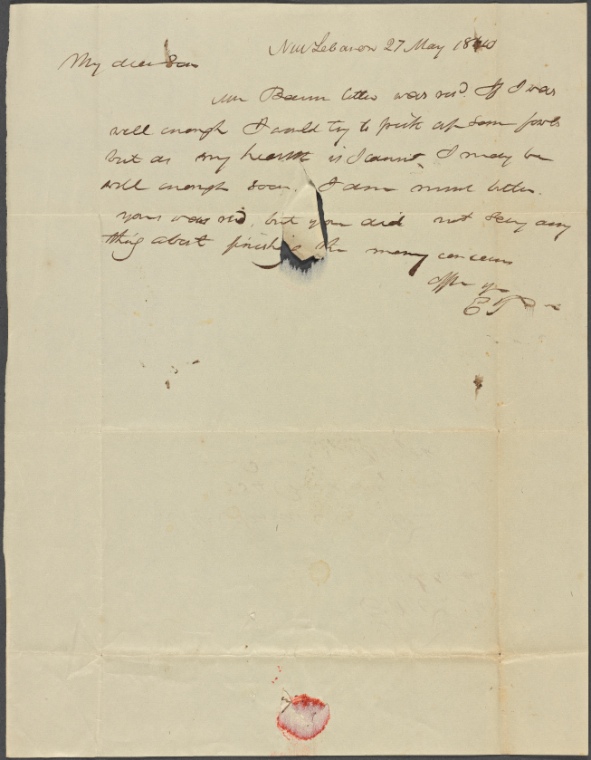 New Lebanon 27 May 1840
My dear Son
letter was recd. If I was
well enough I would try to pick up some fowls
but as my health is I cannot, I may be
well enough soon. I am much better.
yours was recd, but you did not say any
thing about finishing the money concern
E T